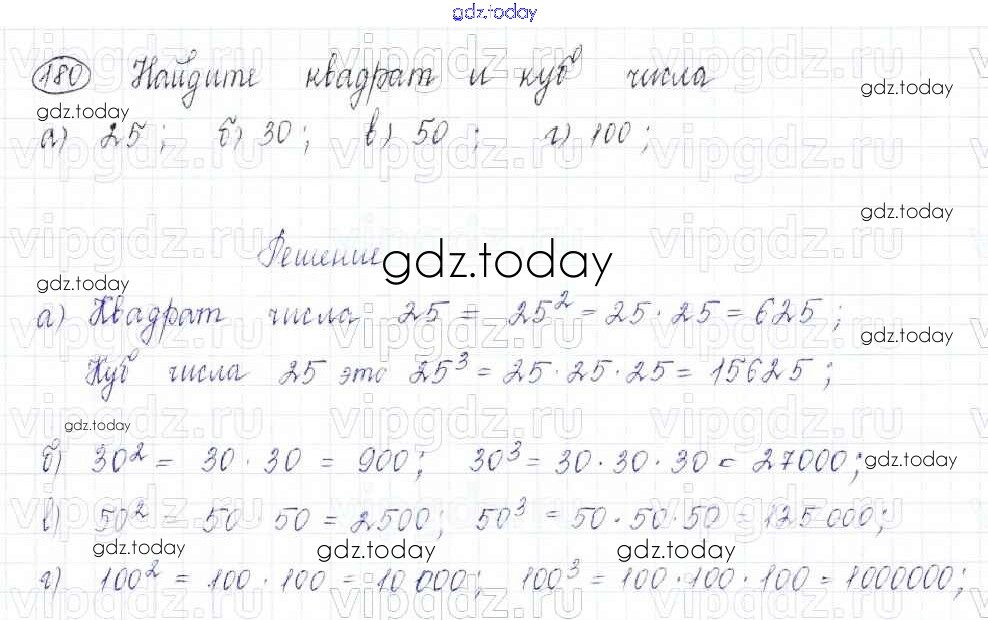 gdz.today
180 Найдите квадрат и куб числа
gdz.today
gdz.today
а) 25; б) 30; в) 50; г) 100;
gdz.today
Решение
gdz.today
gdz.today
а) Квадрат числа 25 = 25² = 25·25 = 625;
gdz.today
Куб числа 25 это 25³ = 25·25·25 = 15625;
gdz.today
б) 30² = 30·30 = 900; 30³ = 30·30·30 = 27000;
gdz.today
в) 50² = 50·50 = 2500; 50³ = 50·50·50 = 125000;
gdz.today gdz.today gdz.today
г) 100² = 100·100 = 10000; 100³ = 100·100·100 = 1000000;
vipgdz.ru vipgdz.ru vipgdz.ru